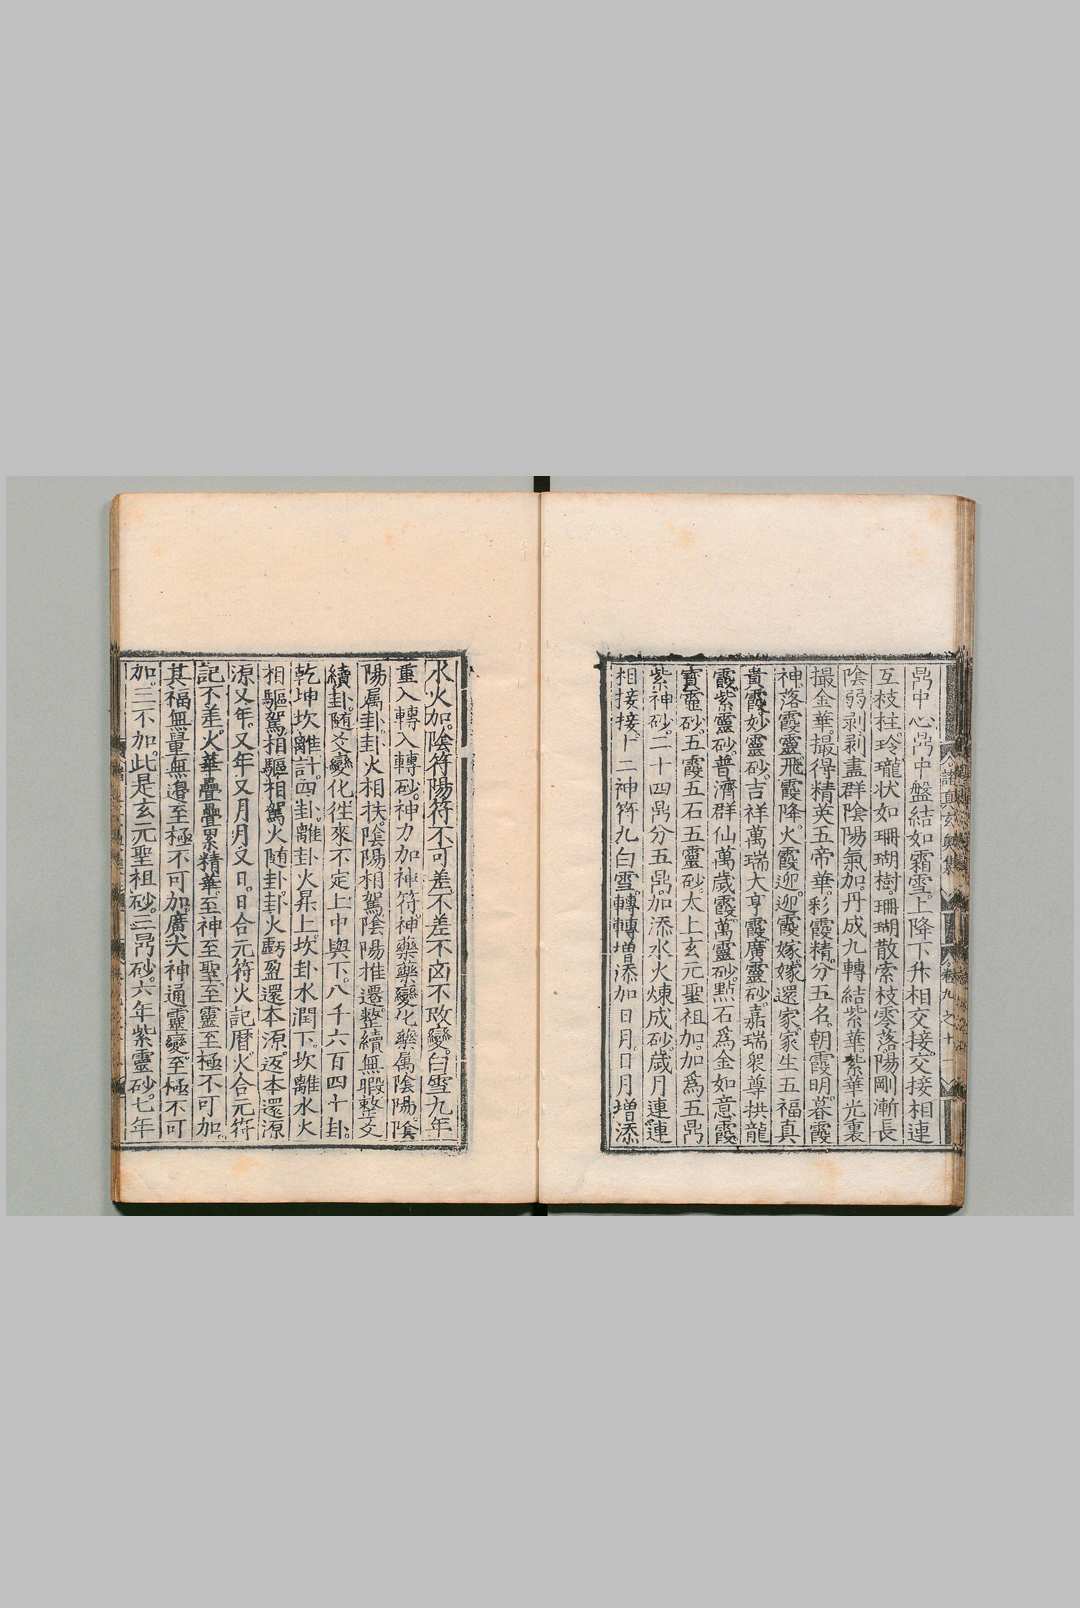 鼎中心鼎中盤結如霜雪上降下升相交接交接相連
互枝柱玲瓏状如珊瑚樹珊瑚散索枝零落陽剛漸長
陰弱剥剥盡群陰陽氣加丹成九轉結紫華紫華光裏
撮金華撮得精英五帝華彩霞精分五名朝霞明暮霞
神落霞靈飛霞降火霞迎迎霞嫁嫁還家家生五福真
貴霞妙靈砂吉祥萬瑞大亨霞廣靈砂嘉瑞衆尊拱龍
霞紫靈砂普濟群仙萬歲霞萬靈砂點石為金如意霞
寶靈砂五霞五石五靈砂太上玄元聖祖加加為五鼎
紫神砂二十四鼎分五鼎加添水火煉成砂歲月連連
相接接十二神符九白雪轉轉増添加日月日月増添
水火加陰符陽符不可差不差不凶不改變白雪九年
重入轉入轉砂神力加神符神藥藥變化藥属陰陽陰
陽属卦卦火相扶陰陽相駕陰陽推遷整續無暇整爻
續卦随爻變化徃來不定上中與下八千六百四十卦
乾坤坎離計四卦離卦火昇上坎卦水潤下坎離水火
相驅駕相驅相駕火随卦卦火虧盈還本源返本還源
源又年又年又月月又日日合元符火記曆火合元符
記不差火華疊疊累精華至神至聖至靈至極不可加
其福無量無邉至極不可加廣大神通靈變至極不可
加三不加此是玄元聖祖砂三鼎砂六年紫靈砂七年